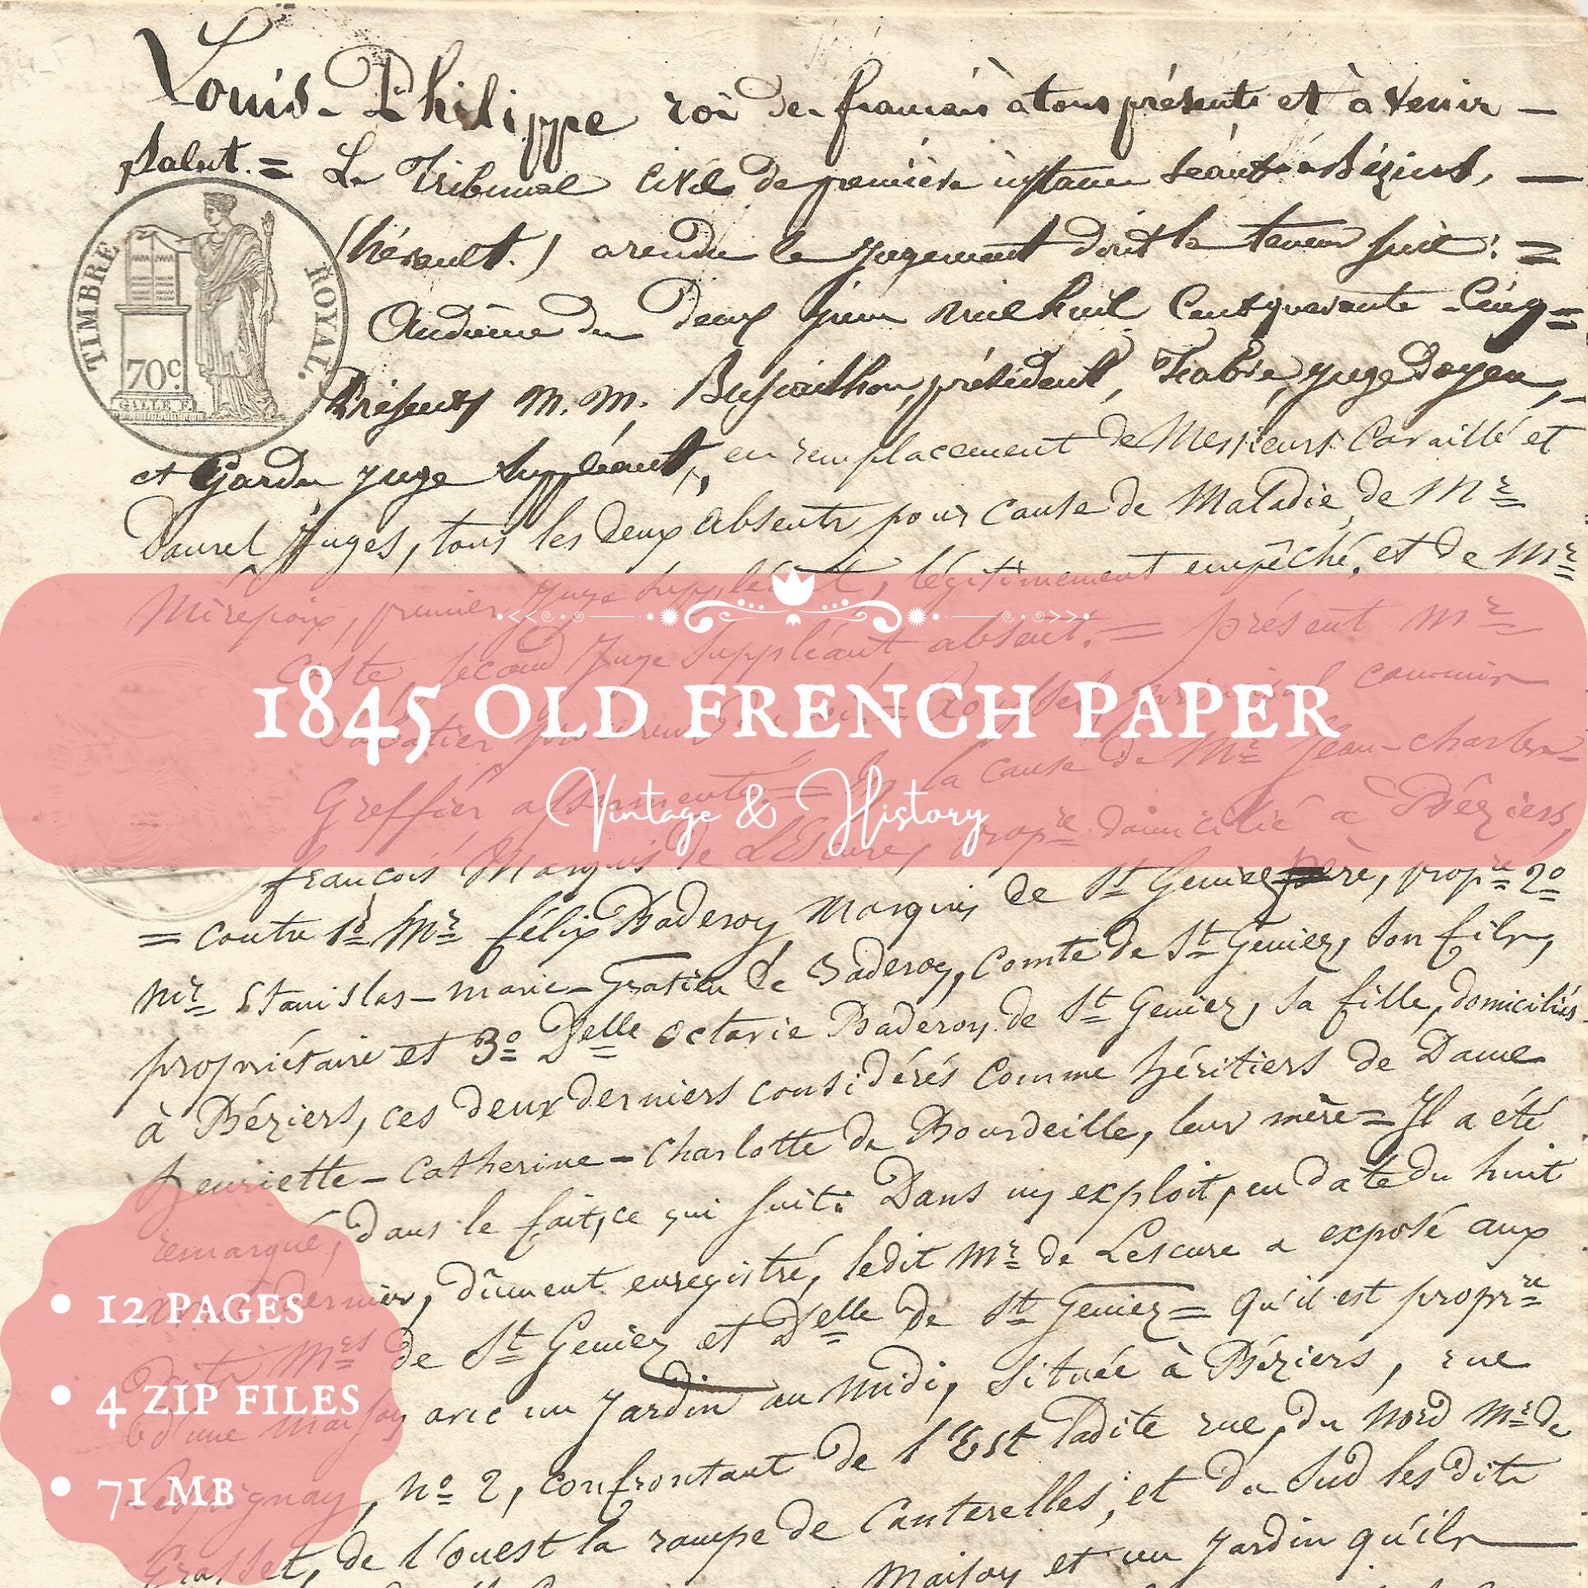 Louis-Philippe roi des français à tous présents et à venir —
salut. = Le Tribunal civil de première instance séant à Béziers, —
(hérault.) a rendu le jugement dont la teneur suit: =
TIMBRE ROYAL.
70c.
Audience du deux juin mil huit cent quarante-cinq =
Présents M.M. président, juge doyen,
et juge suppléant, en remplacement de Messieurs Cavaillé et
Daurel Juges, tous les deux absents pour cause de Maladie, de Mr
Mirepoix, premier juge suppléant, légitimement empêché, et de Mr
Coste, second Juge Suppléant absent. = présent Mr
Sabatier procureur du roi = commis
1845 OLD FRENCH PAPER
Greffier assermenté. = En la cause de Mr Jean-Charles-
Vintage & History
françois Marquis de LEscure, propre domicilié à Béziers,
= contre 1º Mr félix Baderoy Marquis de St Geniez père, propre 2º
Mr Stanislas-marie-Gratien de Baderoy, comte de St Geniez, son fils,
propriétaire et 3º Delle Octavie Baderoy de St Geniez, sa fille, domiciliés
à Béziers, ces deux derniers considérés comme héritiers de Dame
henriette-catherine-charlotte de Bourdeille, leur mère = Il a été
remarqué, dans le fait, ce qui suit: Dans un exploit, en date du huit
dernier, dûment enregistré, ledit Mr de Lescure a exposé aux
dits Mrs de St Geniez et Delle de St Geniez = qu'il est propre
d'une maison avec un jardin au midi, située à Béziers, rue
nº 2, confrontant de l'Est ladite rue, du Nord Mr de
Grasset, de l'ouest la rampe de Canterelles, et du Sud les dits
Maison et un jardin qu'ils
12 PAGES
4 ZIP FILES
71 MB